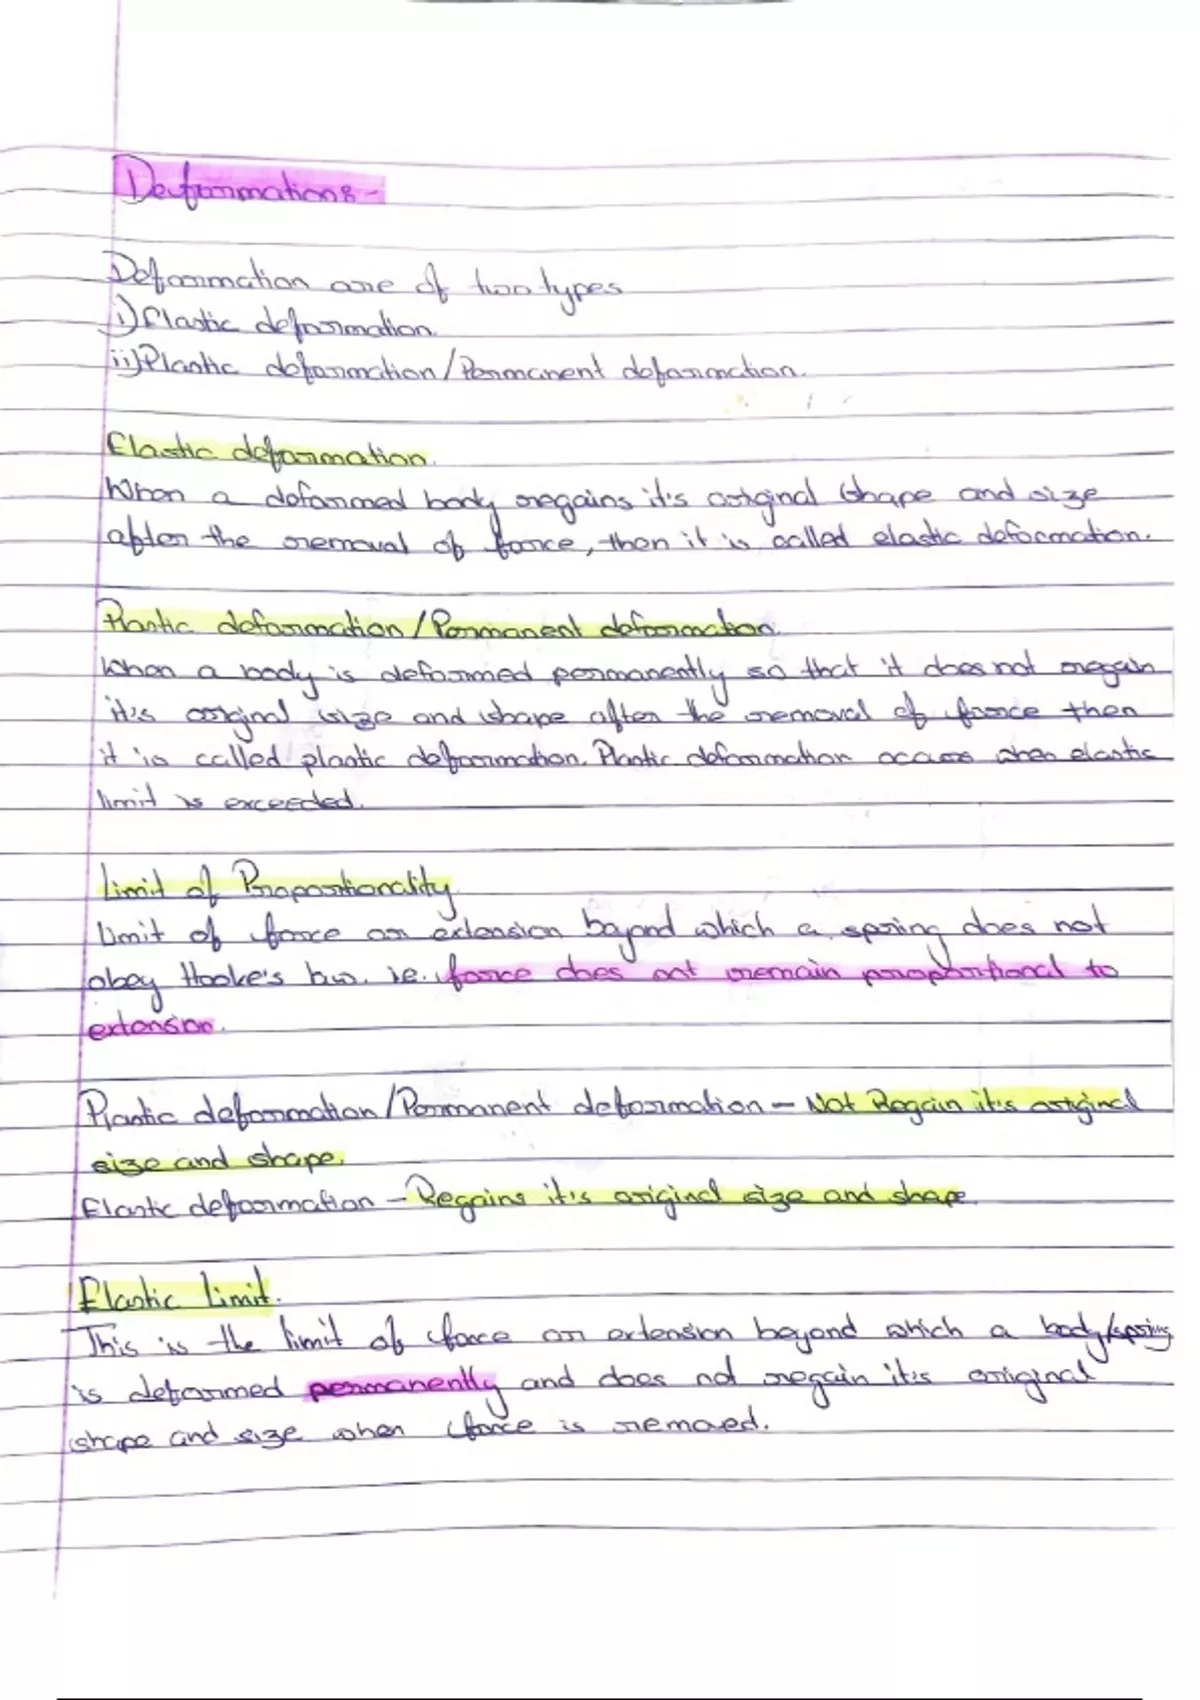 Deformations-
Deformation are of two types
i) Elastic deformation.
ii) Plastic deformation/Permanent deformation.
Elastic deformation.
When a deformed body regains it's original shape and size
after the removal of force, then it is called elastic deformation.
Plastic deformation/Permanent deformation.
When a body is deformed permanently so that it does not regain
it's original size and shape after the removal of force then
it is called plastic deformation. Plastic deformation occurs when elastic
limit is exceeded.
Limit of Proportionality.
Limit of force or extension beyond which a spring does not
obey Hooke's law. i.e. force does not remain proportional to
extension.
Plastic deformation/Permanent deformation - Not Regain it's original
size and shape.
Elastic deformation - Regains it's original size and shape.
Elastic Limit.
This is the limit of force or extension beyond which a body/spring
is deformed permanently and does not regain it's original
shape and size when force is removed.